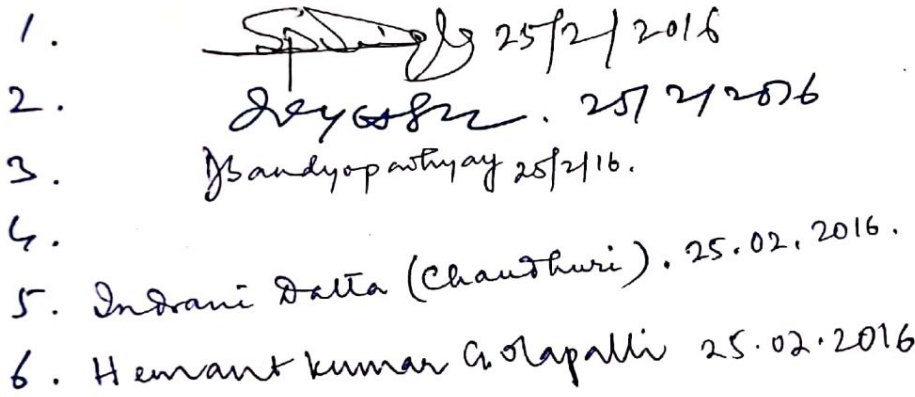 1. 25/2/2016
2. 25/2/2016
3. Bandyopadhyay 25/2/16.
4.
5. Indrani Datta (Chaudhuri). 25.02.2016.
6. Hemant kumar Golapalli 25.02.2016